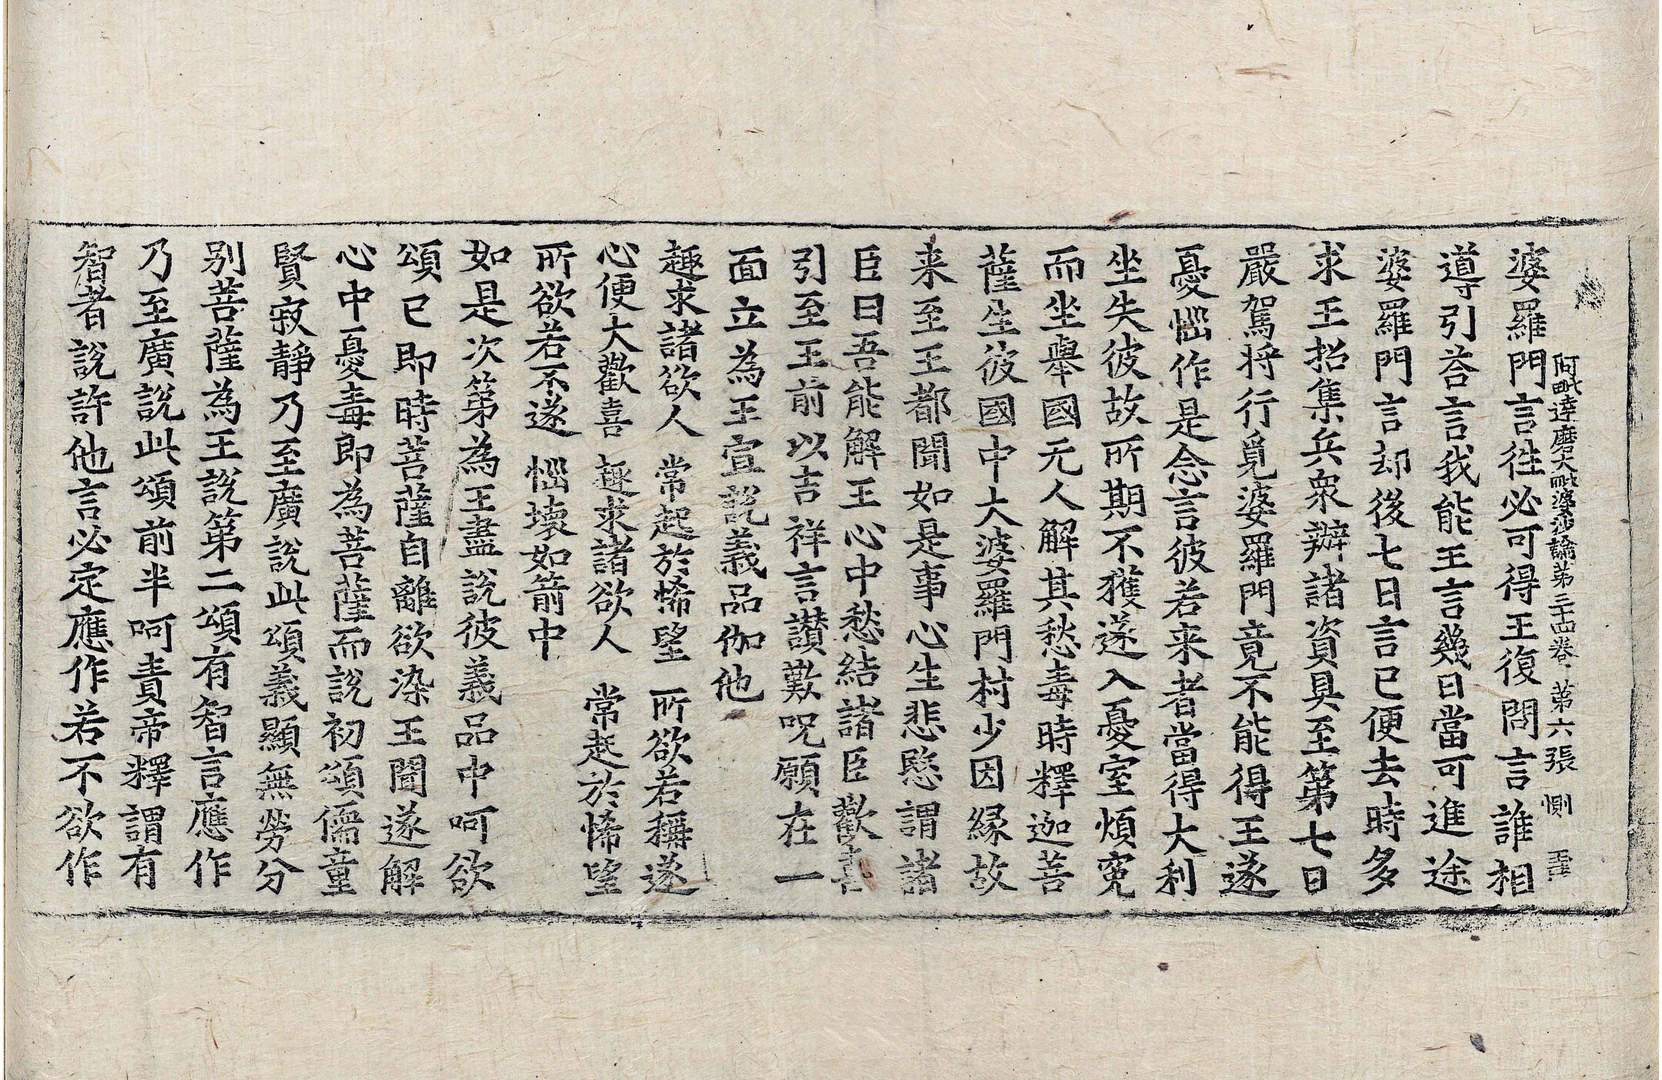 阿毗達磨大毗婆沙論第三十四卷 第六張 惻
婆羅門言往必可得王復問言誰相
導引荅言我能王言幾日當可進途
婆羅門言却後七日言已便去時多
求王招集兵衆辦諸資具至第七日
嚴駕將行覓婆羅門竟不能得王遂
憂惱作是念言彼若来者當得大利
坐失彼故所期不獲遂入憂室煩寃
而坐擧國无人解其愁毒時釋迦菩
薩生彼國中大婆羅門村少因緣故
来至王都聞如是事心生悲愍謂諸
臣曰吾能解王心中愁結諸臣歡喜
引至王前以吉祥言讃歎呪願在一
面立為王宣說義品伽他
趣求諸欲人 常起於悕望 所欲若稱遂
心便大歡喜 趣求諸欲人 常起於悕望
所欲若不遂 惱壞如箭中
如是次第為王盡說彼義品中呵欲
頌已即時菩薩自離欲染王聞遂解
心中憂毒即為菩薩而說初頌儒童
賢寂靜乃至廣說此頌義顯無勞分
别菩薩為王說第二頌有智言應作
乃至廣說此頌前半呵責帝釋謂有
智者說許他言必定應作若不欲作